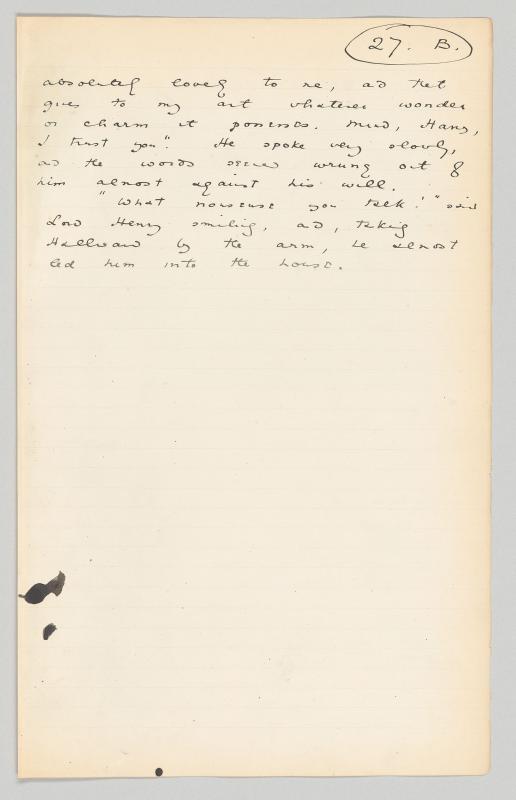 27. B.
absolutely lovely to me, and that
gives to my art whatever wonder
or charm it possesses. Mind, Harry,
I trust you". He spoke very slowly,
and the words seemed wrung out of
him almost against his will.
"What nonsense you talk!" said
Lord Henry smiling, and, taking
Hallward by the arm, he almost
led him into the house.